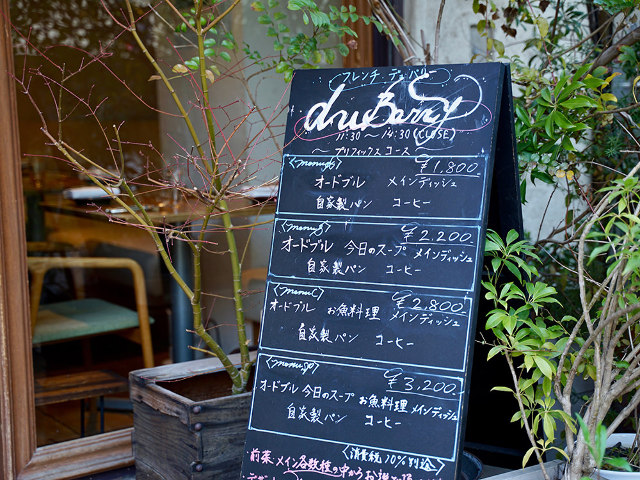 フレンチ・デュバリー
duBarry
11:30～14:30(CLOSE)
～プリフィックスコース～
〈menu A〉 ¥1,800
オードブル メインディッシュ
自家製パン コーヒー
〈menu B〉 ¥2,200
オードブル 今日のスープ メインディッシュ
自家製パン コーヒー
〈menu C〉 ¥2,800
オードブル お魚料理 メインディッシュ
自家製パン コーヒー
〈menu D〉 ¥3,200
オードブル 今日のスープ お魚料理 メインディッシュ
自家製パン コーヒー
〈消費税10%別途〉
前菜 メイン各数種の中からお選び